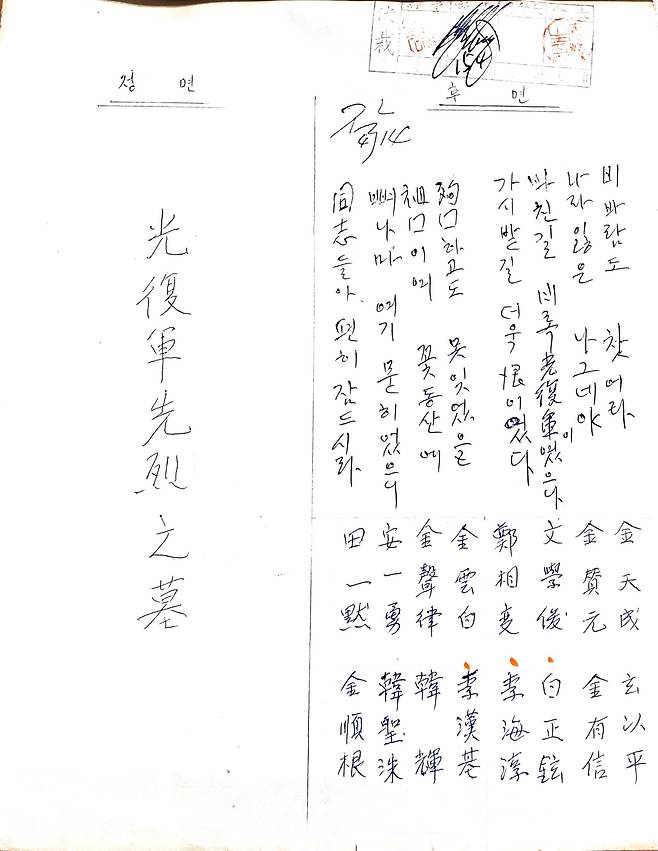 決裁
15/4
정 면
후 면
4/14
光復軍先烈之墓
비바람도 찻어라.
나라 잃은 나그네야
바친길 비록 光復軍이었으나
가시밭길 더욱 恨이었다.
殉囗하고도 못잊었을
祖囗이여 꽃동산에
뼈나마 여기 묻히었으니
同志들아 편히 잠드시라.
金天成
金贊元
文學俊
鄭相燮
金雲白
金聲律
安一勇
田一黙
玄以平
金有信
白正鉉
李海淳
李漢基
韓輝
韓聖洙
金順根